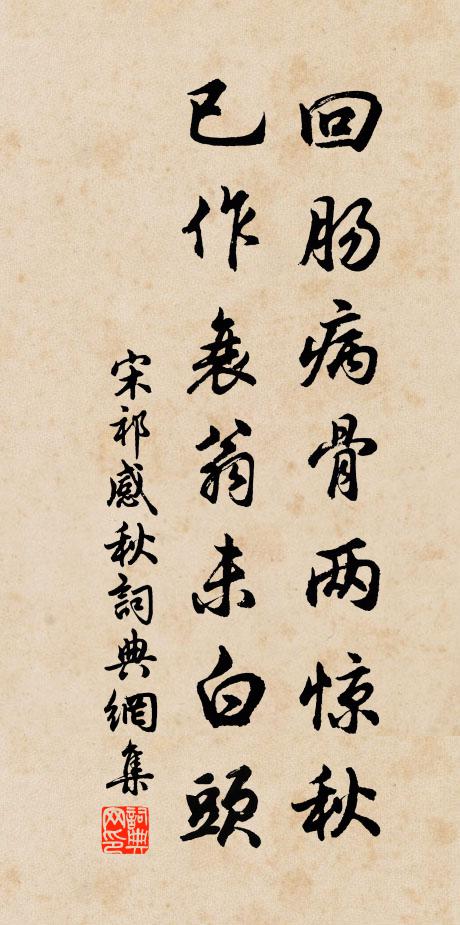 回肠病骨两惊秋
已作衰翁未白頭
宋祁感秋詞典網集
詞典网印